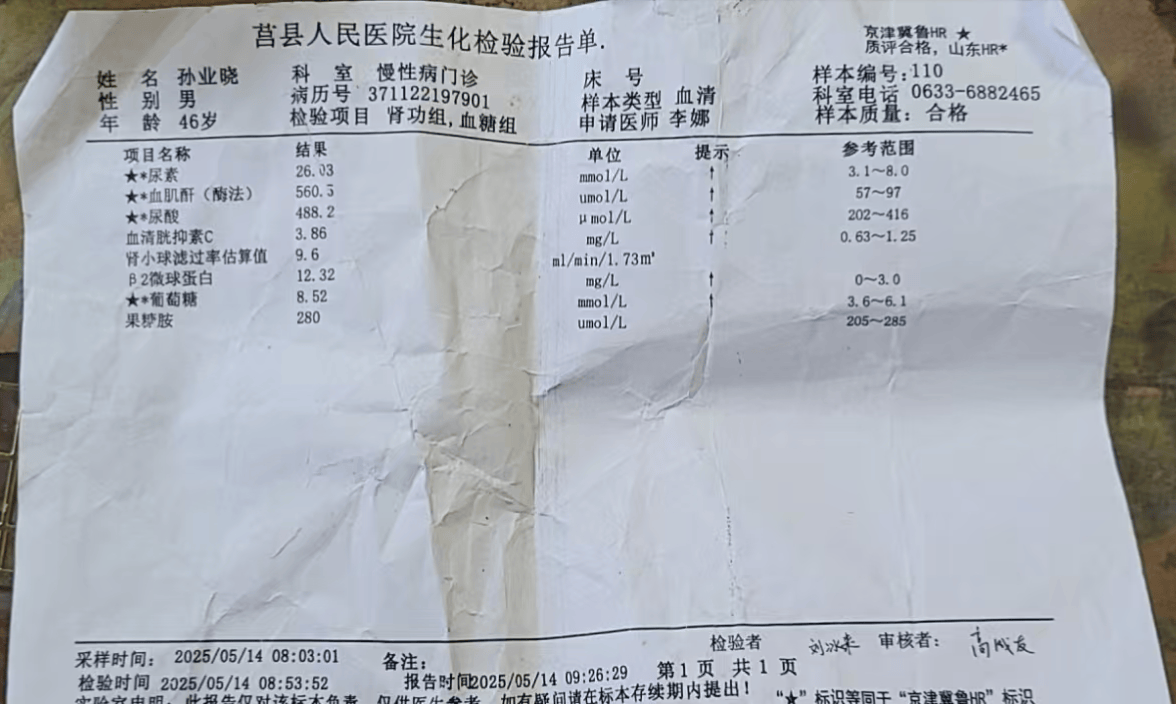 莒县人民医院生化检验报告单.
京津冀鲁HR ★
质评合格, 山东HR*
姓 名 孙业晓 科 室 慢性病门诊 床 号 样本编号:110
性 别 男 病历号 371122197901 样本类型 血清 科室电话 0633-6882465
年 龄 46岁 检验项目 肾功组,血糖组 申请医师 李娜 样本质量: 合格
项目名称 结果 单位 提示 参考范围
★*尿素 26.03 mmol/L ↑ 3.1～8.0
★*血肌酐（酶法） 560.5 umol/L ↑ 57～97
★*尿酸 488.2 μmol/L ↑ 202～416
血清胱抑素C 3.86 mg/L ↑ 0.63～1.25
肾小球滤过率估算值 9.6 ml/min/1.73㎡
β2微球蛋白 12.32 mg/L ↑ 0～3.0
★*葡萄糖 8.52 mmol/L ↑ 3.6～6.1
果糖胺 280 umol/L 205～285
检验者 刘冰来 审核者: 高成友
采样时间: 2025/05/14 08:03:01 备注:
检验时间 2025/05/14 08:53:52 报告时间2025/05/14 09:26:29 第1页 共1页
实验室申明: 此报告仅对该标本负责, 仅供医生参考, 如有疑问请在标本存续期内提出! "★"标识等同于"京津冀鲁HR"标识